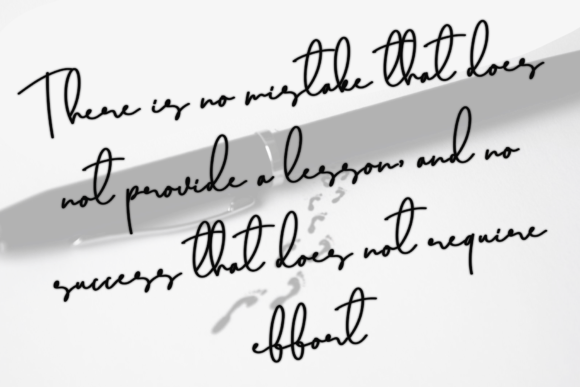 There is no mistake that does
not provide a lesson, and no
success that does not require
effort